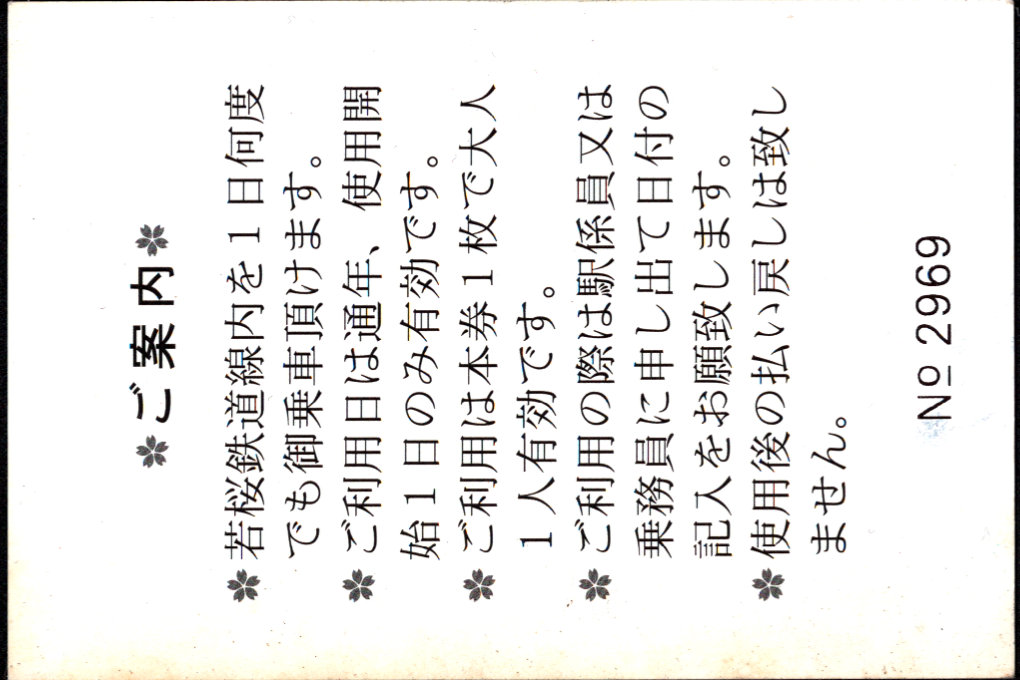 ✿ご案内✿
✿若桜鉄道線内を1日何度
でも御乗車頂けます。
✿ご利用日は通年、使用開
始1日のみ有効です。
✿ご利用は本券1枚で大人
1人有効です。
✿ご利用の際は駅係員又は
乗務員に申し出て日付の
記入をお願致します。
✿使用後の払い戻しは致し
ません。
№ 2969